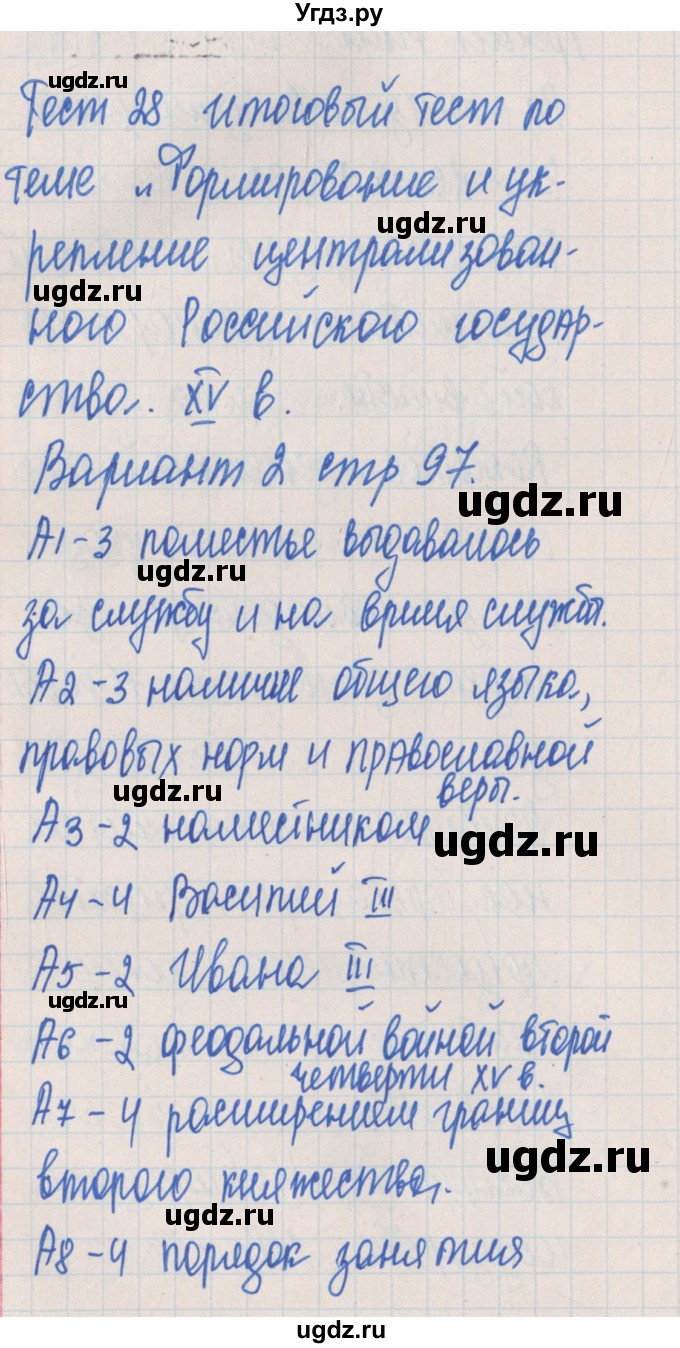 Угдз.ру
ugdz.ru
Тест 28 Итоговый тест по
теме „Формирование и ук-
ugdz.ru
репление централизован-
ugdz.ru
ного Российского государ-
ства. XV в.
Вариант 2 стр 97.
ugdz.ru
А1-3 поместье выдавалось
ugdz.ru
за службу и на время службы.
А2-3 наличие общего языка,
правовых норм и православной
веры.
ugdz.ru
А3-2 наместником
ugdz.ru
А4-4 Василий III
А5-2 Ивана III
ugdz.ru
А6-2 феодальной войной второй
четверти XV в.
А7-4 расширением границ
ugdz.ru
второго княжества.
ugdz.ru
А8-4 порядок занятия
ugdz.ru